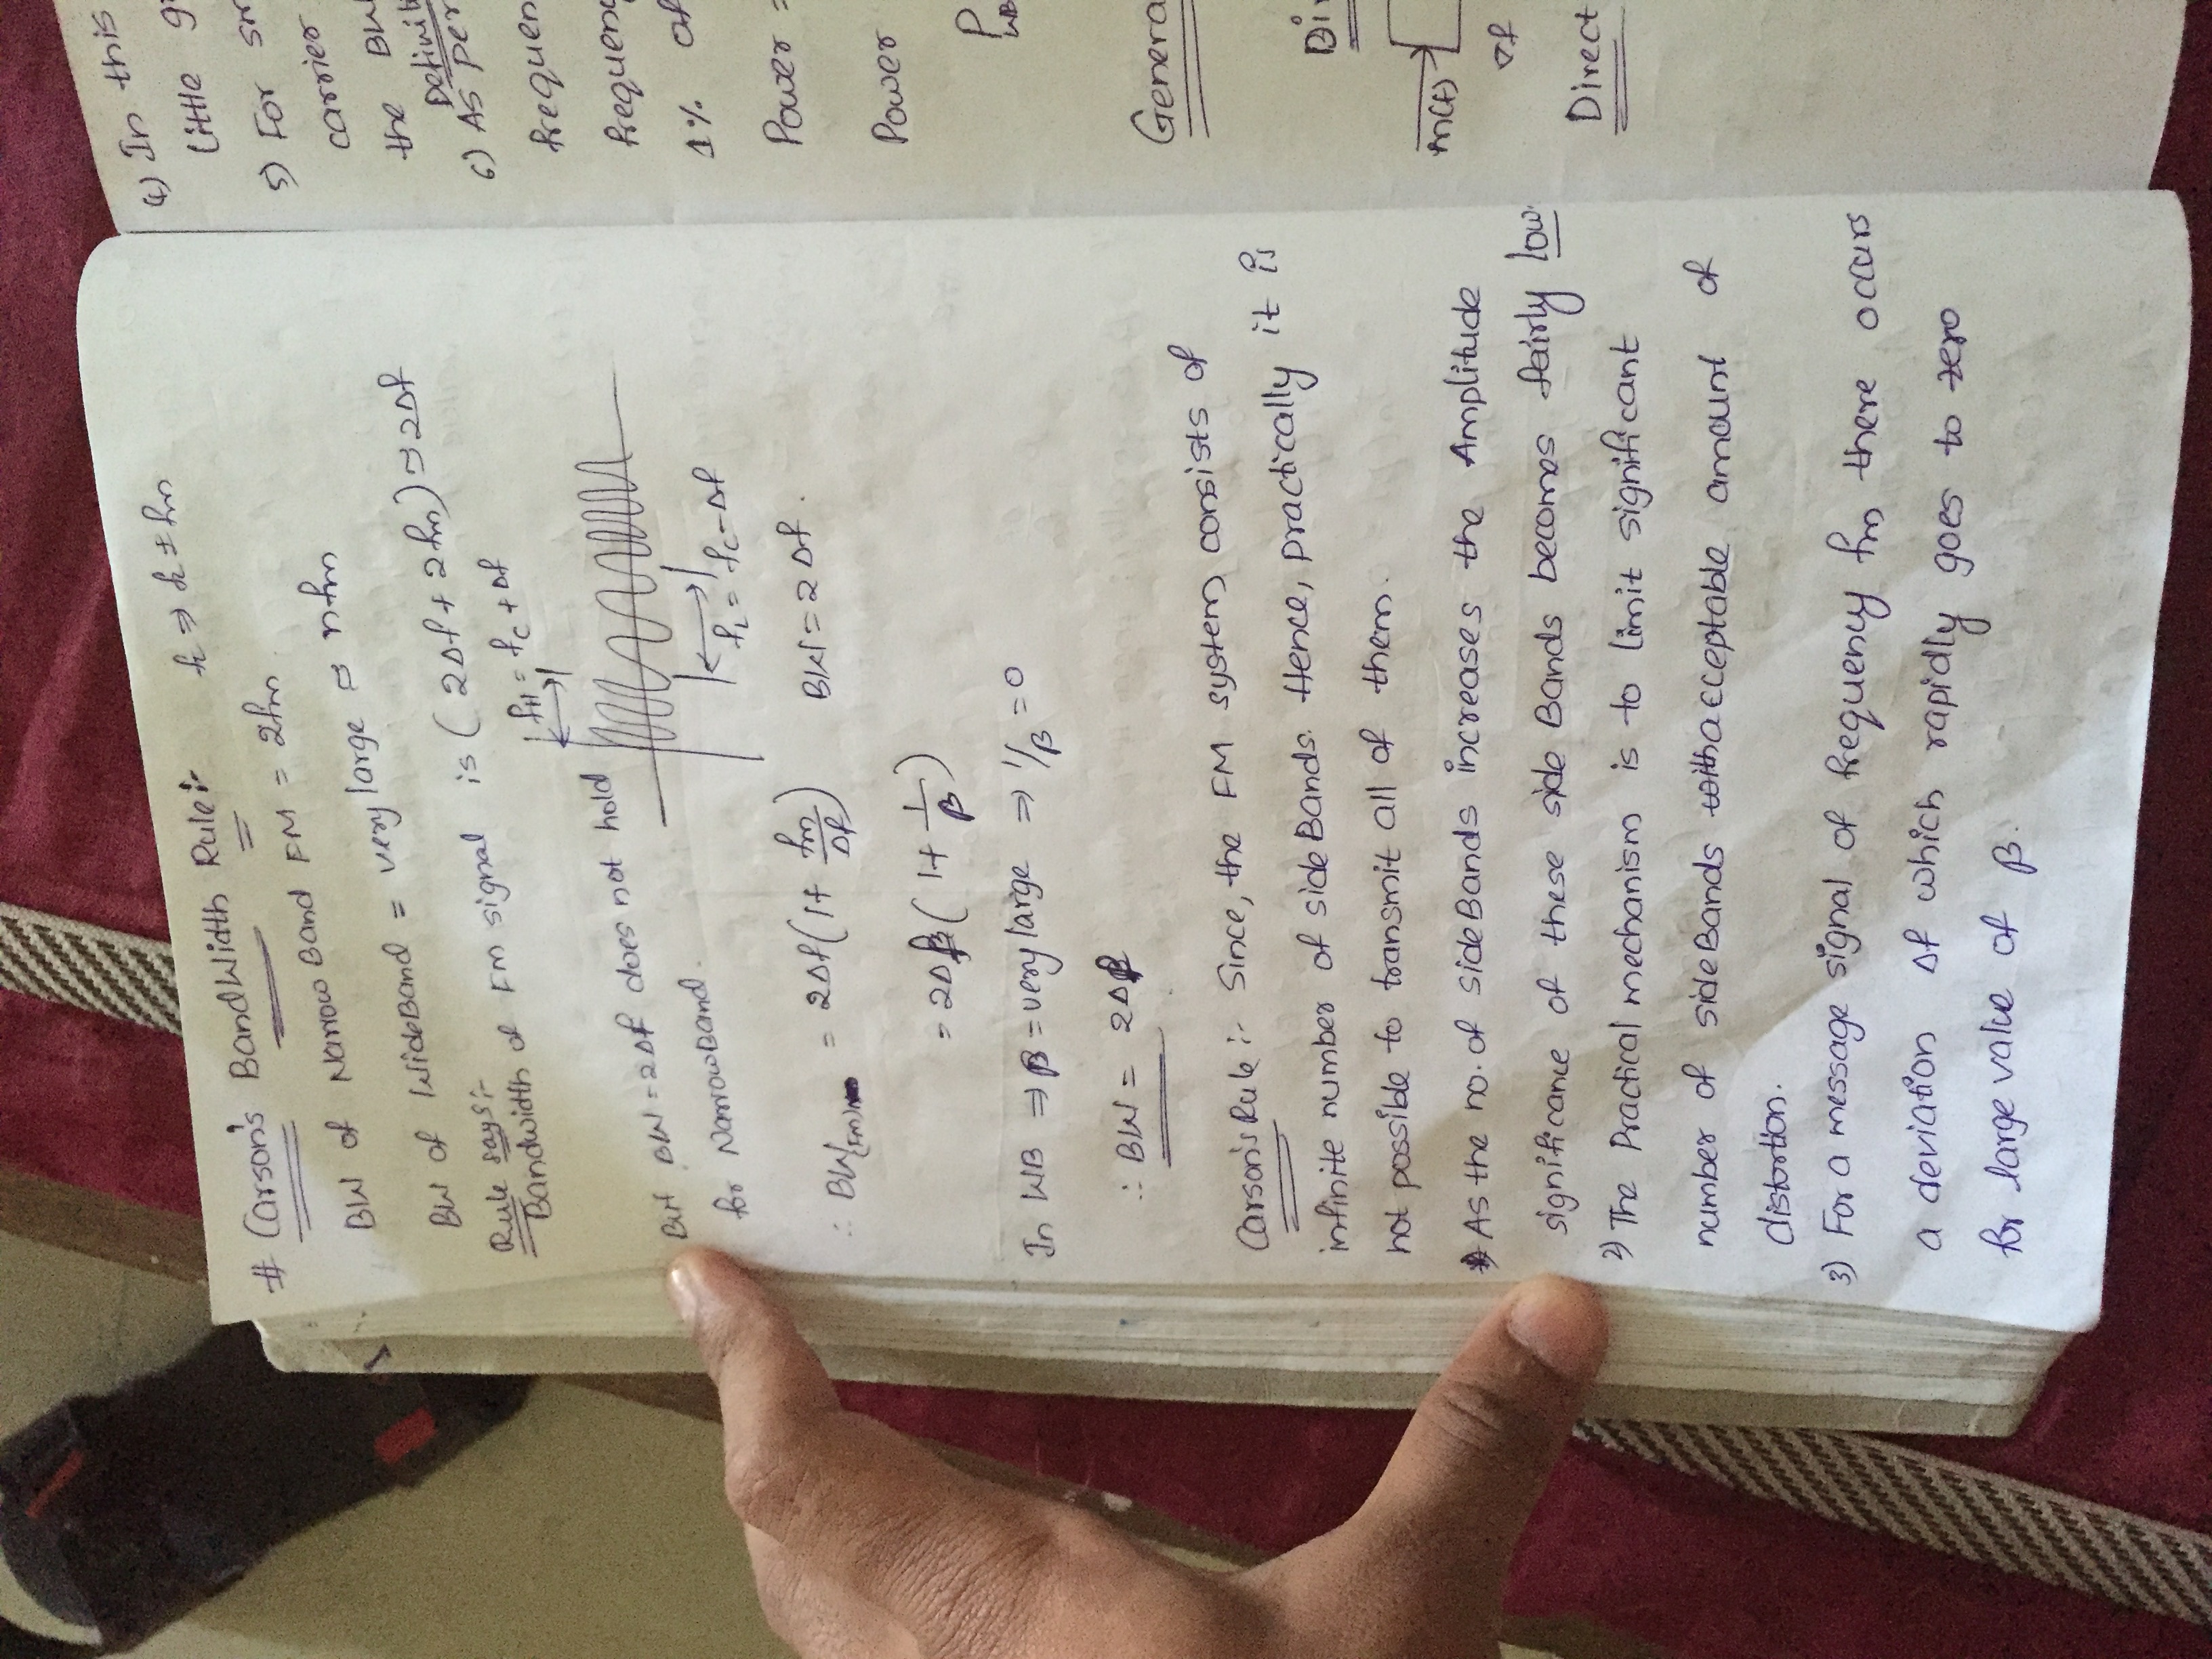 # Carson's BandWidth Rule:- fc ⇒ fc ± fm
BW of Narrow Band FM = 2fm
BW of WideBand = very large ≈ nfm
Rule says:-
Bandwidth of FM signal is (2Δf + 2fm) ≈ 2Δf
fH = fc + Δf
But BW = 2Δf does not hold
for NarrowBand.
fL = fc - Δf
∴ BW(FM) = 2Δf(1+ fm/Δf) BW = 2Δf.
= 2Δf(1+ 1/β)
In WB ⇒ β = very large ⇒ 1/β = 0
∴ BW = 2Δf
Carson's Rule :- Since, the FM system consists of
infinite number of sideBands. Hence, practically it is
not possible to transmit all of them.
As the no. of sideBands increases the Amplitude
significance of these side Bands becomes fairly low.
2) The Practical mechanism is to limit significant
number of sideBands with acceptable amount of
distortion.
3) For a message signal of frequency fm there occurs
a deviation Δf which rapidly goes to zero
for large value of β.
4) In this
little
5) For
carrier
the
6) As per
1% of
Power =
Power
P WB
m(t)
of
Direct